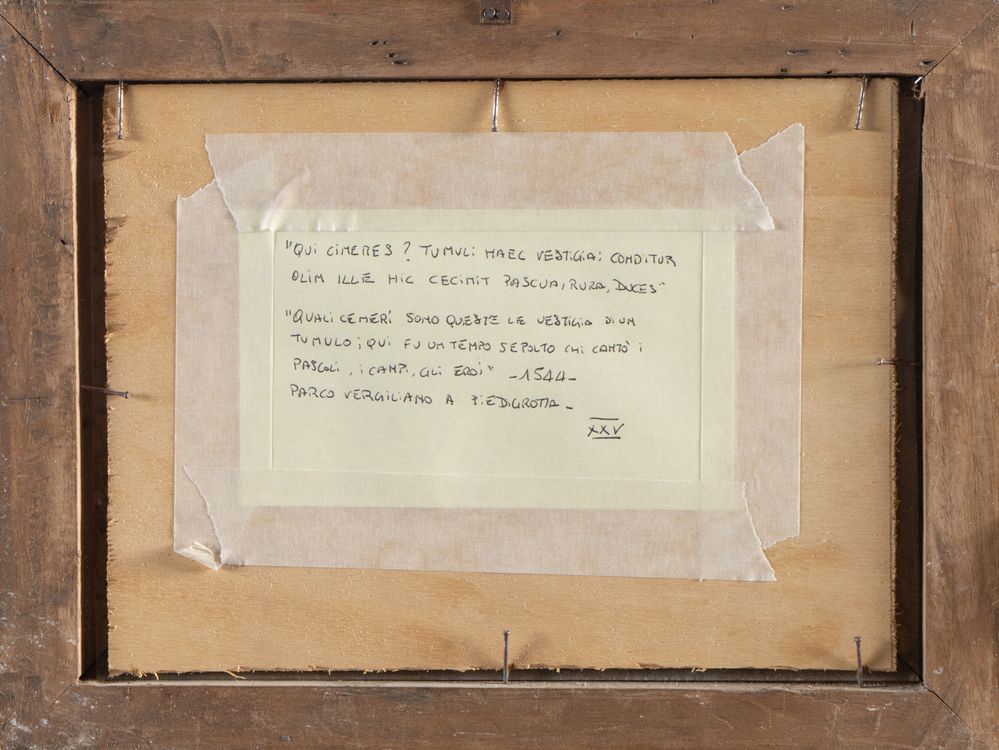 "QUI CIMERES ? TUMULI HAEC VESTIGIA: CONDITUR
OLIM ILLE HIC CECINIT PASCUA, RURA, DUCES"
"QUALI CEMERI SONO QUESTE LE VESTIGIA DI UN
TUMULO; QUI FU UN TEMPO SEPOLTO CHI CANTÒ I
PASCOLI, I CAMPI, GLI EROI" -1544-
PARCO VERGILIANO A PIEDIGROTTA -
XXV